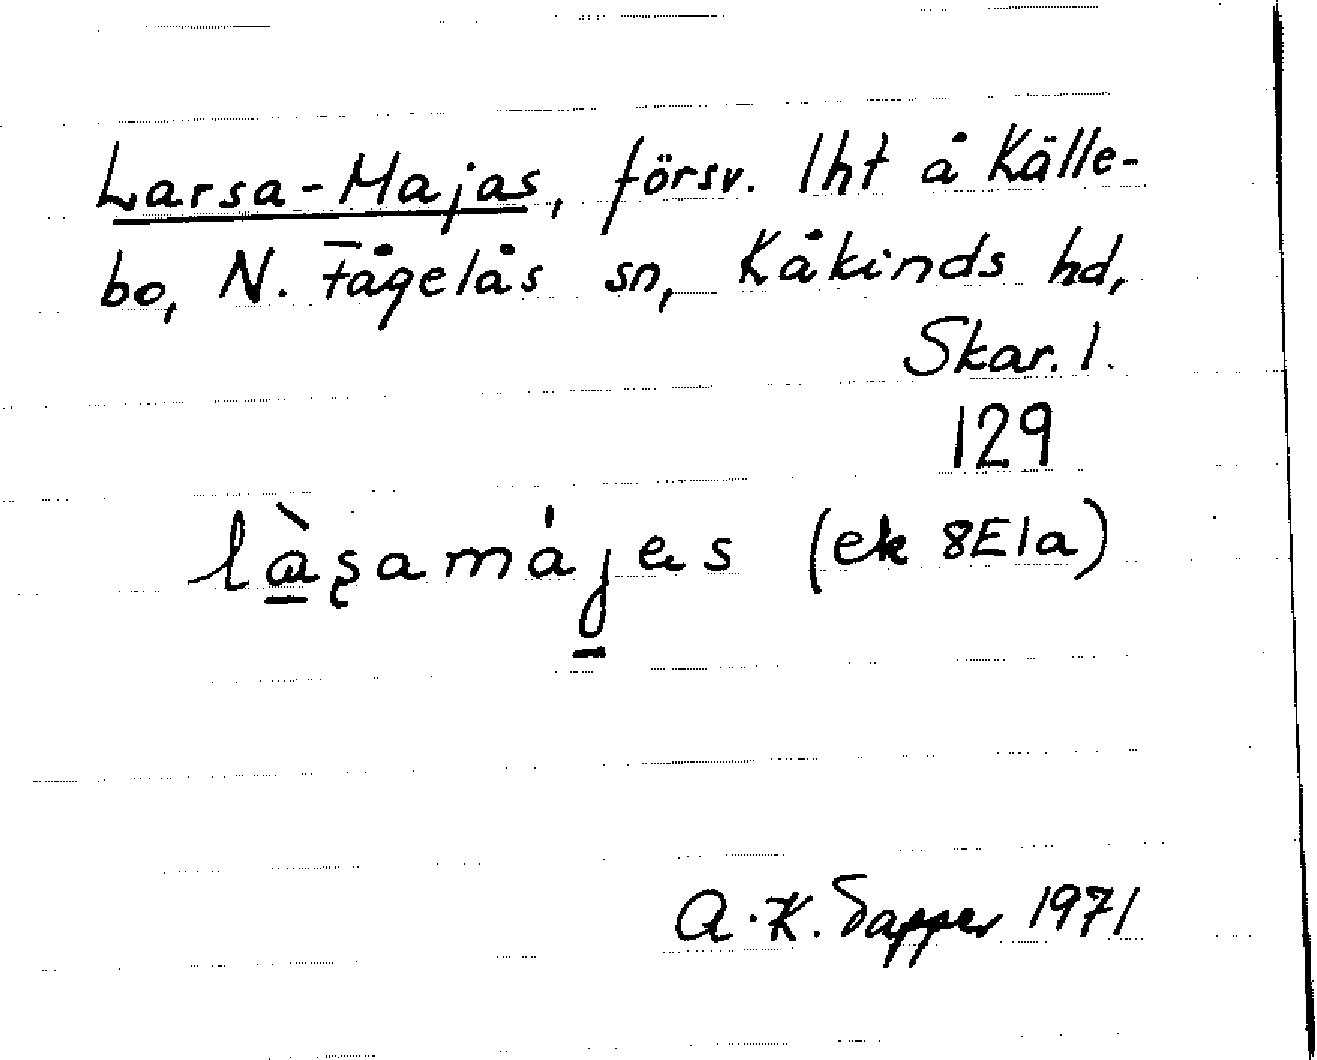 Larsa-Majas, försv. lht å Källe-
bo, N. Fågelås sn, Kåkinds hd,
Skar. l.
129
là̱ʂamájes (ek 8E1a)
A.K. Tapper 1971